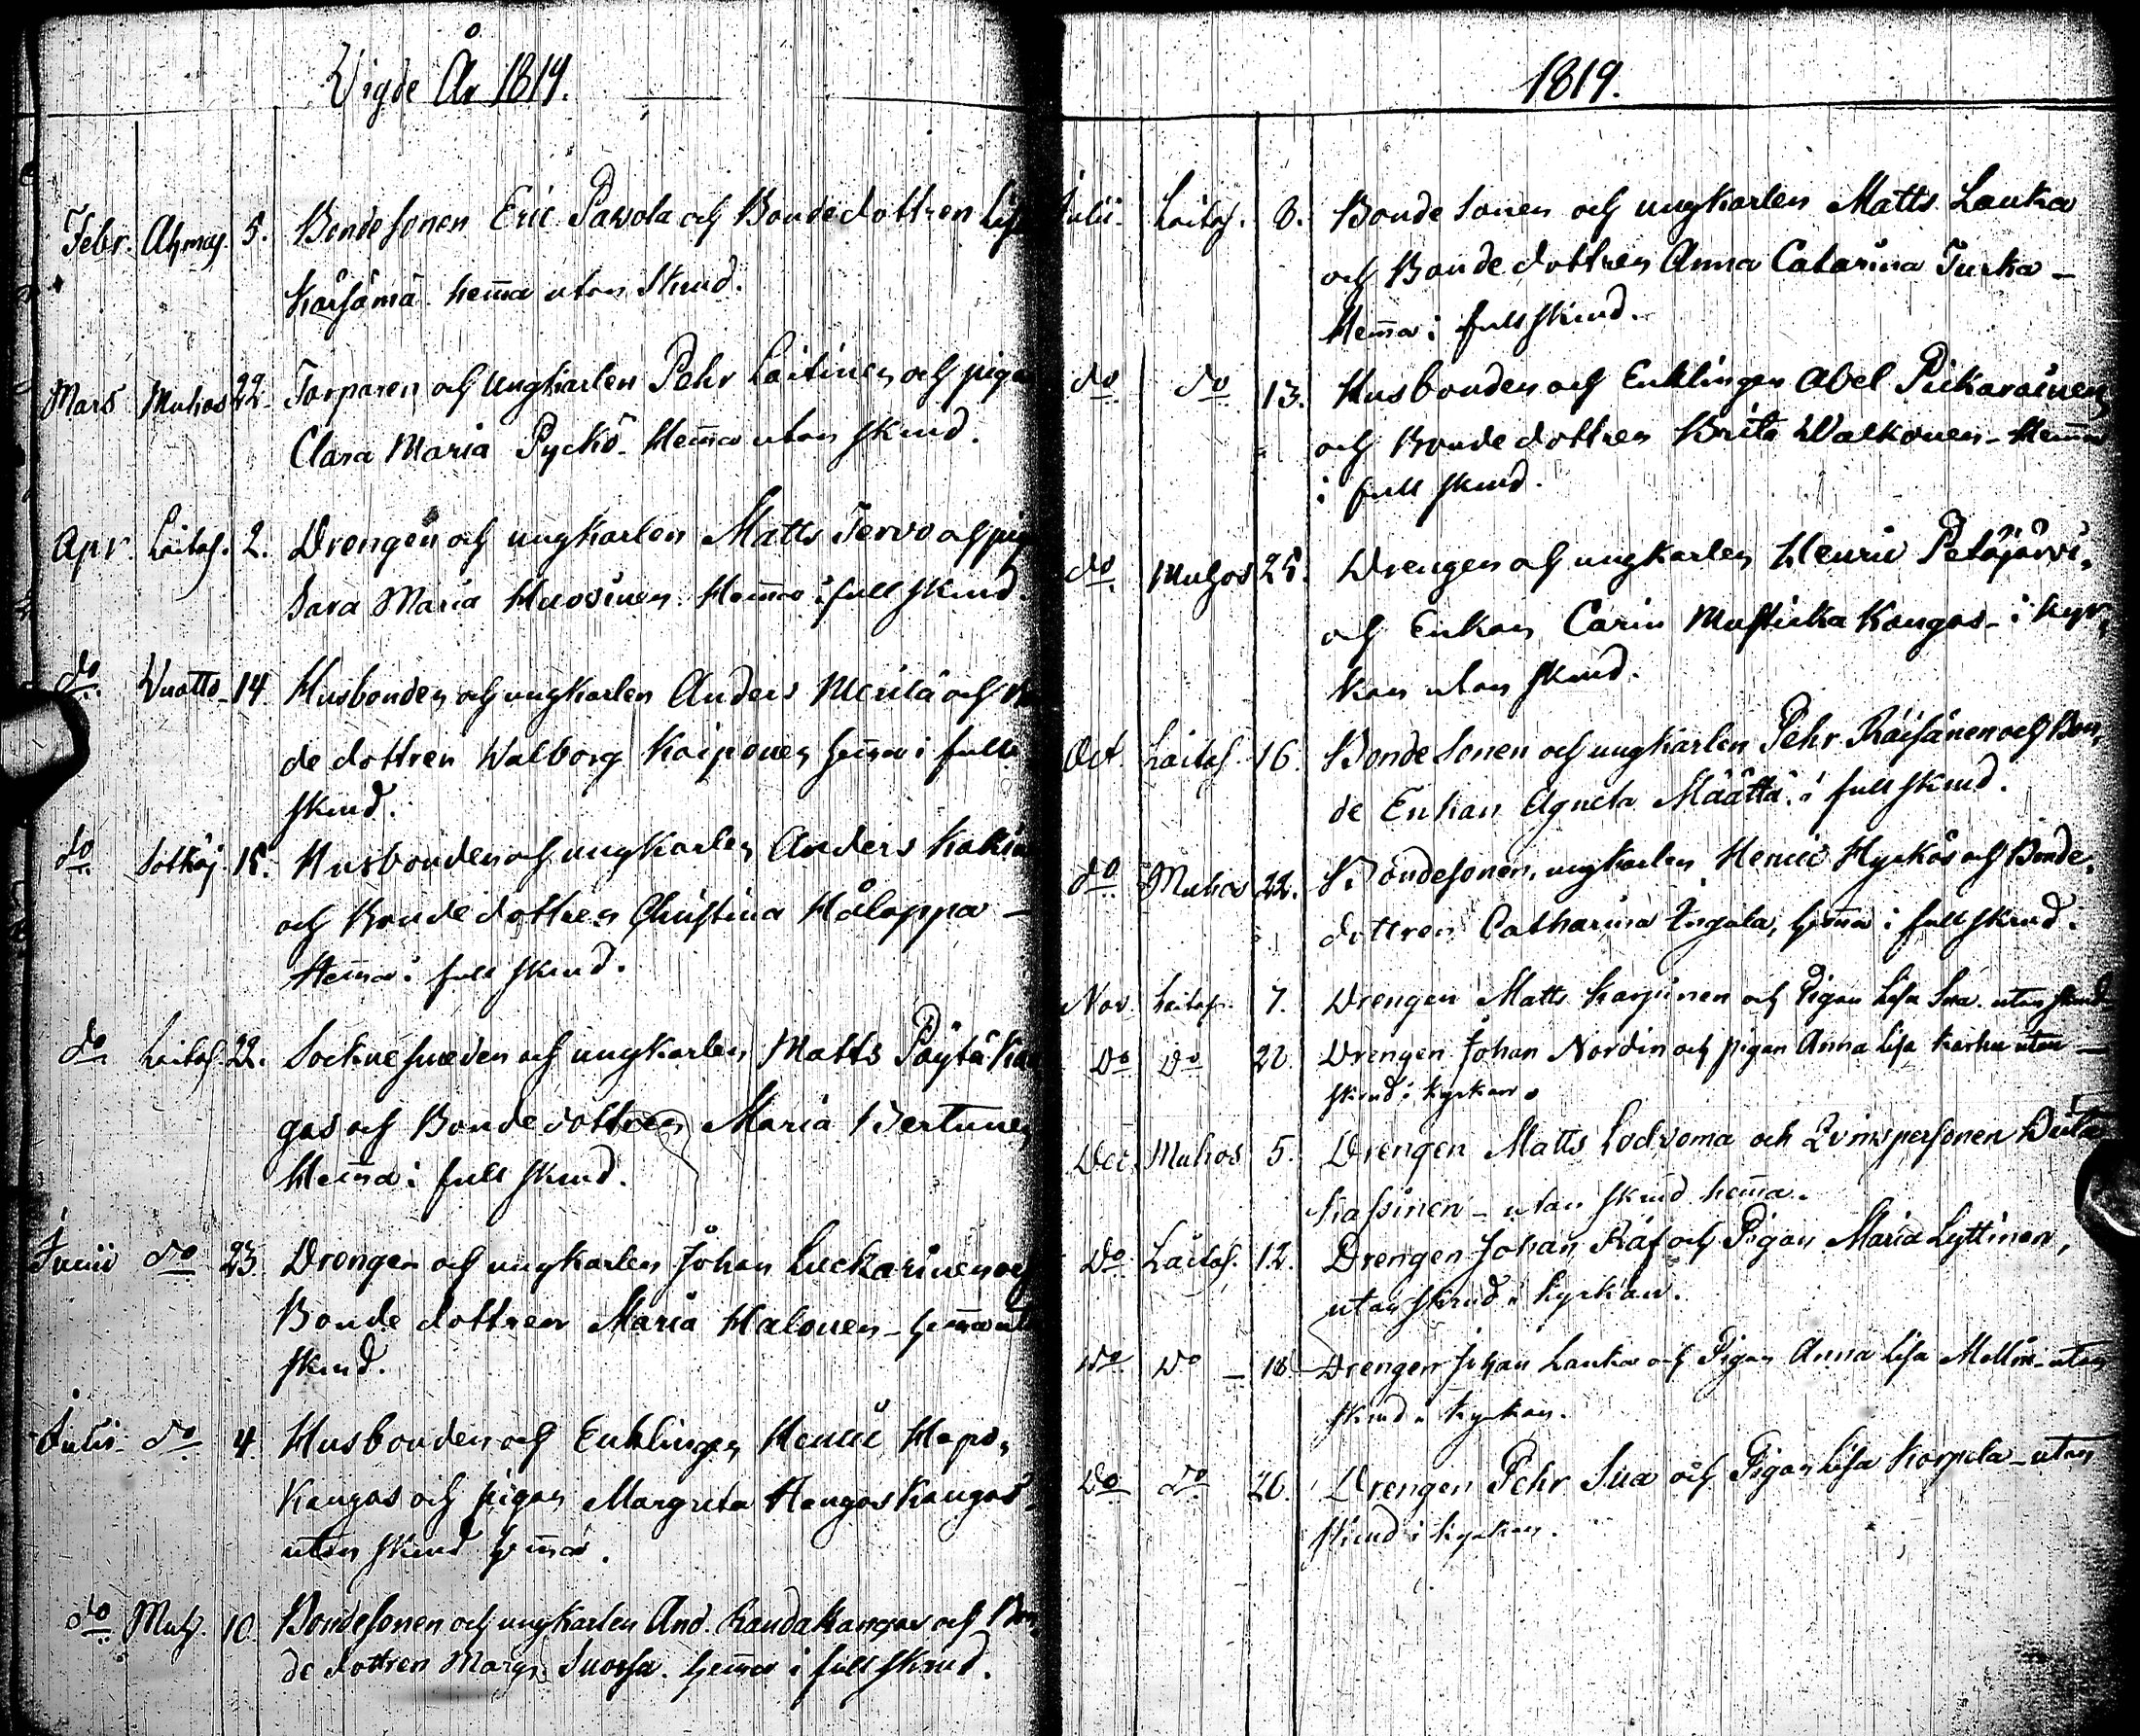 Vigde År 1819.
Febr. Ahmas. 5. Bondesonen Eric Pavola och Bondedottren Lisa
Kärsämä hem̄a utan Skrud.
Mars Muhos 22. Torparen och Ungkarlen Pehr Laitinen och piga
Clara Maria Pyckö. Hem̄a utan skrud.
Apr. Laitas. 2. Drengen och ungkarlen Matts Tervo och pig
Sara Maria Huovinen. Hem̄a i full skrud.
do Vuotto 14. Husbonden och ungkarlen Anders Merilä och
de dottren Walborg Koiponen hem̄a i full
skrud.
do Sotkaj. 15. Husbonden och ungkarlen Anders
och Bondedottren Christina Håloppa –
Hem̄a i full skrud.
do Laitas. 22. Socknesmeden och ungkarlen Matts Pöytäkan
gas och Bondedottren Maria Vertunen
Hem̄a i full skrud.
Junii do 23. Drengen och ungkarlen Johan Luckarinen och
Bonde dottren Maria Halonen – hem̄a ut
skrud.
Julii do 4. Husbonden och Enklingen Henric Hapo,
Kangas och pigan Margreta Hangaskangas
utan skrud hem̄a.
do Muh. 10. Bondesonen och ungkarlen And. Randakangas och Bon
de dottren Margr. Suorsa. hem̄a i full skrud.
1819.
Julii. Laitas. 8. Bonde Sonen och ungkarlen Matts Lauka
och Bonde dottren Anna Catarina Turka –
Hem̄a i full skrud.
do do 13. Husbonden och Enklingen Abel Pickarainen
och Bonde dottren Brita Walkonen – Hem̄a
i full skrud.
do Muhos 25. Drengen och ungkarlen Henric Petäjärvi,
och Enkan Carin Mustickakangas – i kyr,
kan utan skrud.
Oct. Laitas. 16. Bonde Sonen och ungkarlen Pehr Räisänen och Bon,
de Enkan Agneta Määttä i full skrud.
do Muhos 22. Bondesonen, ungkarlen Henric Hyrkäs och Bonde,
dottren Catharina Ingala, hem̄a i full skrud.
Nov. Laitas. 7. Drengen Matts Karjinen och Pigan Lisa Sua utan skrud
Do Do 22. Drengen Johan Nordin och pigan Anna Lisa Karhu utan –
skrud i kyrkan.
Dec. Muhos 5. Drengen Matts Lodvoma och Qvinspersonen Brita
Kassinen – utan skrud hem̄a.
Do Laitas. 12. Drengen Johan Räf och Pigan Maria Lyttinen,
utan skrud i kyrkan.
Do Do – 18 – Drengen Johan Lauka och Pigan Anna Lisa Mellin – utan
skrud i kyrkan.
Do do 26. Drengen Pehr Sua och Pigan Lisa Korpela – utan
skrud i kyrkan.